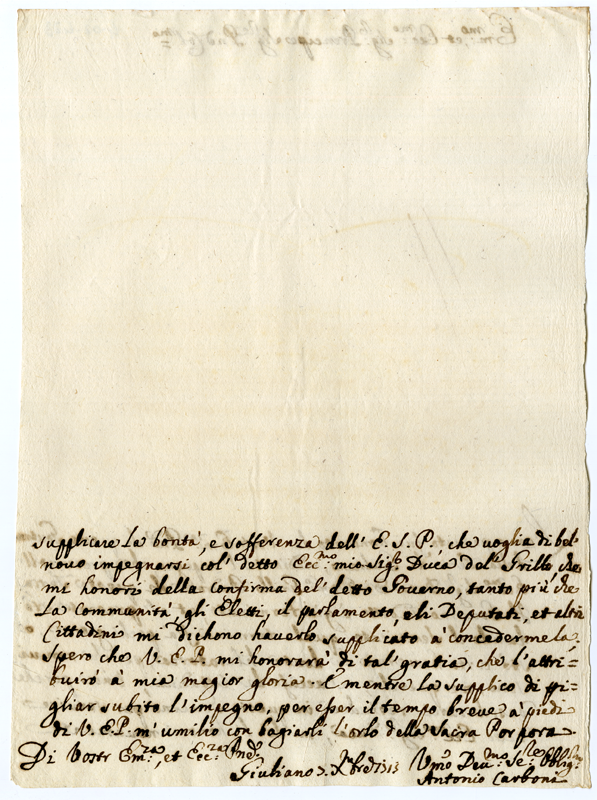 supplicare la bontà, e sofferenza dell' E. S. P. che voglia di bel
novo impegnarsi col' detto Ecc:mo mio Sig:r Duca del' Grillo che
mi honori della confirma del' detto Governo, tanto più che
la Communità, gli Eletti, il parlamento, eli Deputati, et altri
Cittadini mi dichono haverlo supplicato à concedermela,
spero che V. E. P. mi honorarà di tal' gratia, che l'attri=
buirò à mia magior gloria. E mentre la supplico di pi=
gliar subito l'impegno, per esser il tempo breve à piedi
di V. E. P. m' umilio con bagiarli l'orlo della Sacra Porpora
Di Vostr Em:za, et Ecc:za
Giuliano 7 Xbre 1713 Vmo Dev:mo Se:re Oblig:mo
Antonio Carboni